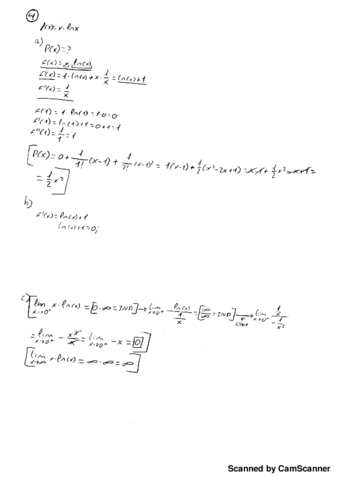 4
f(x)=x·lnx
a)
P(x)=?
f(x)=x·ln(x)
f'(x)=1·ln(x)+x·1/x=ln(x)+1
f''(x)=1/x
f(1)=1·ln(1)=1·0=0
f'(1)=ln(1)+1=0+1=1
f''(1)=1/1=1
[P(x)=0+1/1!(x-1)+1/2!(x-1)²=1(x-1)+1/2(x²-2x+1)=x-1+1/2x²-x+1=
=1/2x²]
b)
f'(x)=ln(x)+1
ln(x)+1=0;
c)
[lim x→0⁺ x·ln(x)=[0·∞=IND]→lim x→0⁺ ln(x)/(1/x)=[∞/∞=IND]→lim x→0⁺ (1/x)/(-1/x²)
=lim x→0⁺ -x²/x=lim x→0⁺ -x=0]
[lim x→∞ x·ln(x)=∞·∞=∞]
Scanned by CamScanner